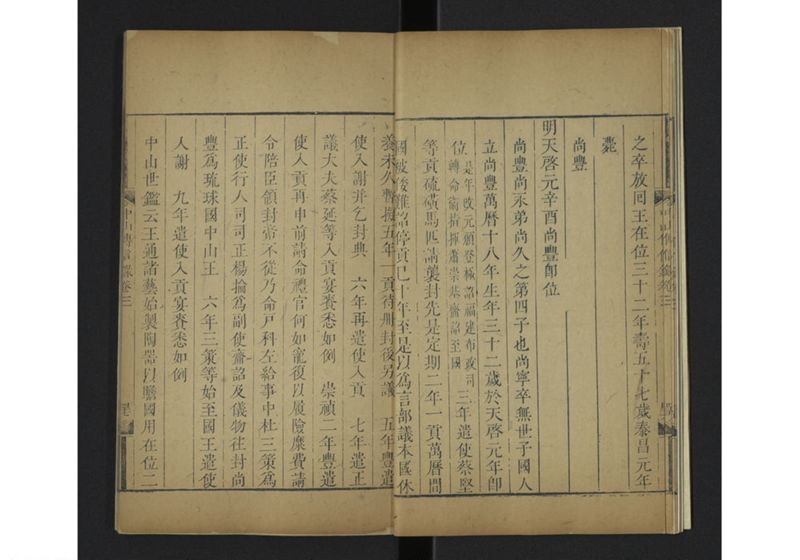 之卒放回王在位三十二年壽五十七歲泰昌元年
薨
尚豐
明天啓元辛酉尚豐卽位
尚豐尚永弟尚久之第四子也尚寧卒無世子國人
立尚豐萬曆十八年生年三十二歲於天啓元年卽
位是年改元頒登極詔福建布政司
轉命衛指揮蕭崇基齎詔至國三年遣使蔡堅
等貢硫磺馬匹請襲封先是定期二年一貢萬曆間
國被倭難詔停貢已十年至是以爲言部議本國休
養未久暫擬五年一貢待冊封後另議 五年豐遣
使入謝并乞封典 六年再遣使入貢 七年遣正
議大夫蔡延等入貢宴賚悉如例 崇禎二年豐遣
使入貢再申前請命禮官何如寵復以履險糜費請
令陪臣領封帝不從乃命戶科左給事中杜三策爲
正使行人司司正楊掄爲副使齎詔及儀物往封尚
豐爲琉球國中山王 六年三策等始至國王遣使
人謝 九年遣使入貢宴賚悉如例
中山世鑑云王通諸藝始製陶器以勝國用在位二
中山傳信錄卷三